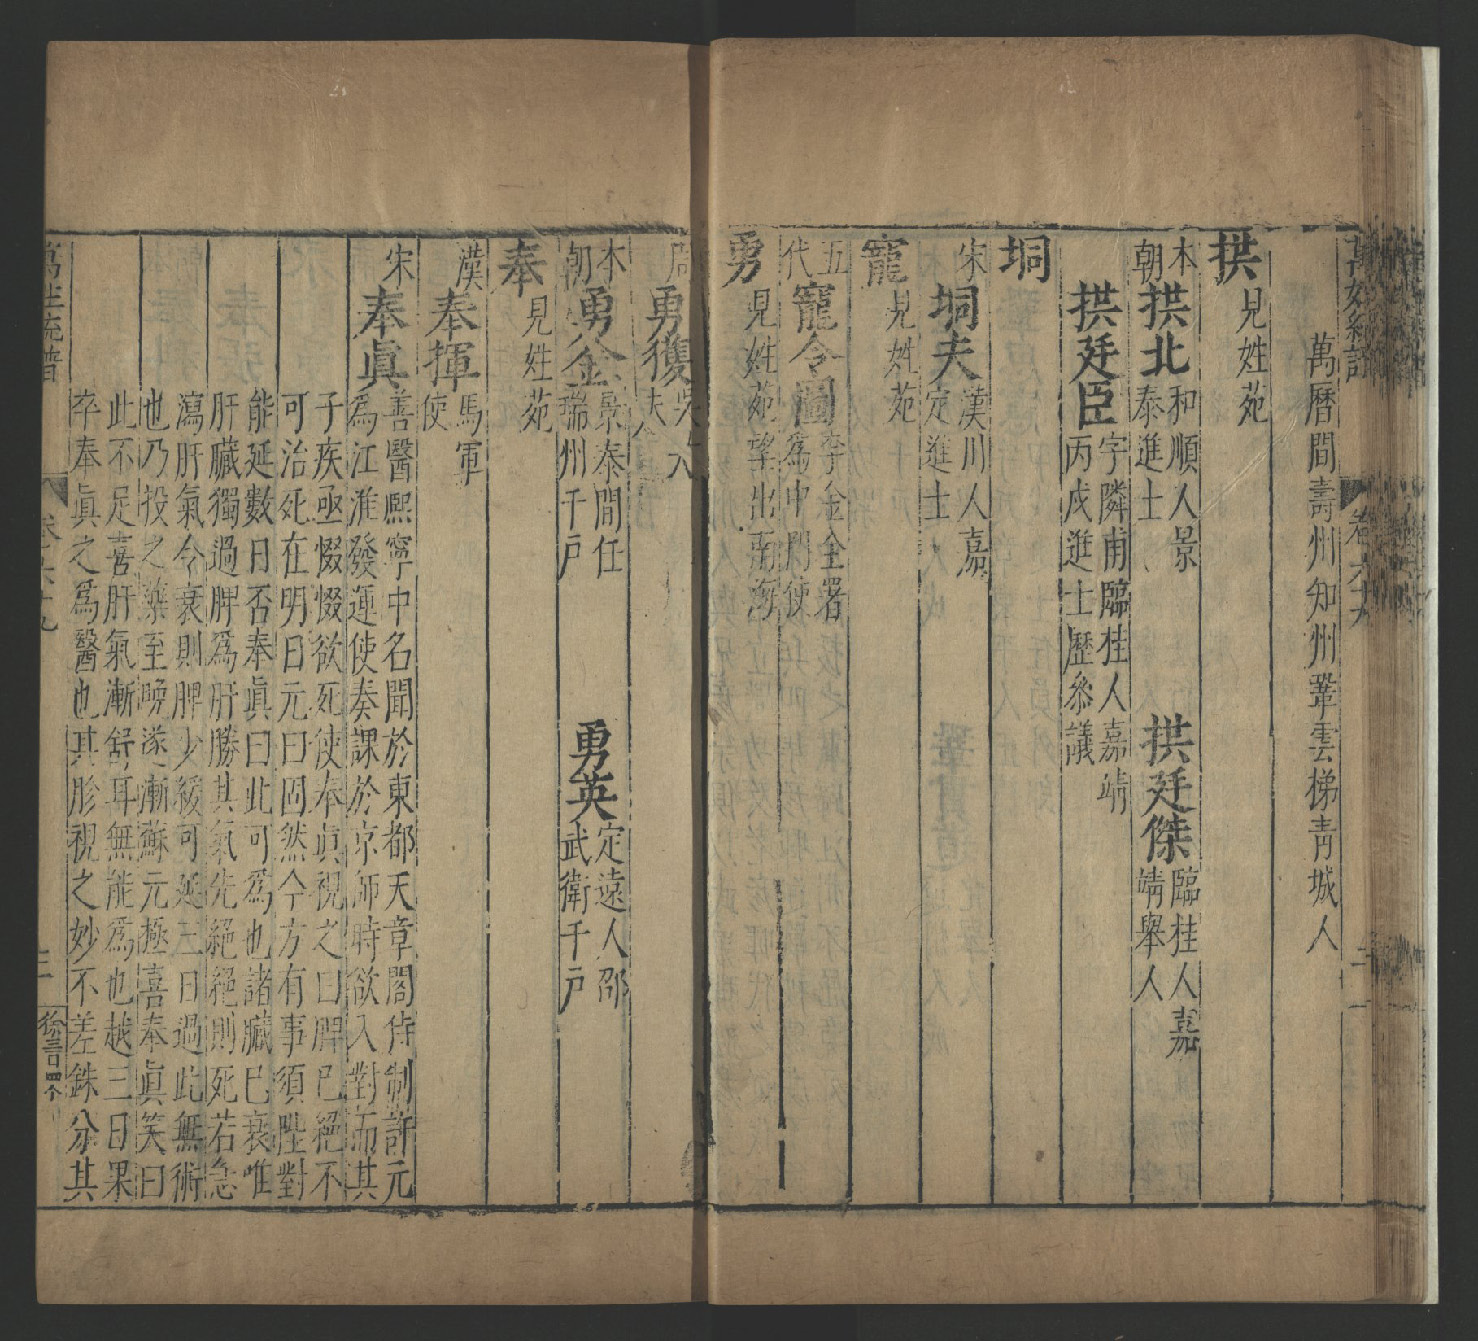 萬曆間壽州知州鞏雲梯青城人
拱見姓苑
本朝拱北和順人景泰進士 拱廷傑臨桂人嘉靖舉人
拱廷臣字隣甫臨桂人嘉靖丙戌進士歷叅議
垌
宋垌夫漢川人嘉定進士
寵見姓苑
五代寵令圖李金全署為中門使
勇見姓苑望出南海
周勇獲吳大夫
本朝勇金景泰間任瑞州千戸 勇英定遠人邵武衛千戸
奉見姓苑
漢奉揮馬軍使
宋奉眞善醫熙寧中名聞於東都天章閣侍制許元
為江淮發運使奏課於京師時欲入對而其
子疾亟惙惙欲死使奉眞視之曰脾已絕不
可治死在明日元曰固然今方有事須陛對
能延數日否奉眞曰此可爲也諸臟已衰唯
肝臟獨過脾爲肝勝其氣先絕絕則死若急
瀉肝氣令衰則脾少緩可延三日過此無術
也乃投之藥至晚遂漸蘇元極喜奉眞笑曰
此不足喜肝氣漸舒耳無能爲也越三日果
卒奉眞之爲醫也其胗視之妙不差銖分其
萬姓統譜
三